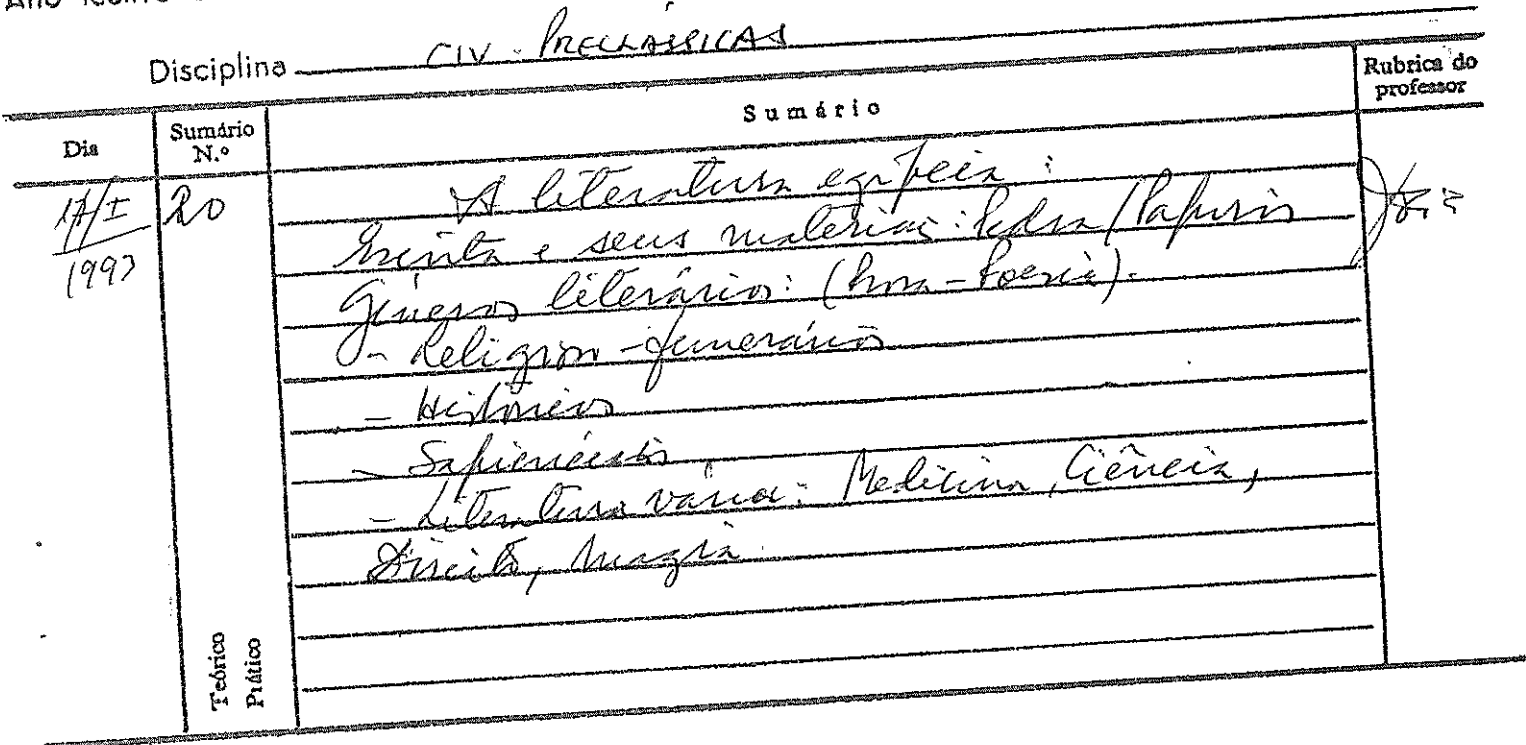 Disciplina CIV. PRECLÁSSICAS
Dia
Sumário N.º
Sumário
Rubrica do professor
/I 1993
20
A literatura egípcia:
Escrita e seus materiais: Pedra / Papiros
Géneros literários: (Prosa - Poesia).
- Religioso - funerários
- Históricos
- Sapienciais
- Literatura vária: Medicina, Ciência,
Direito, Magia.
Teórico
Prático